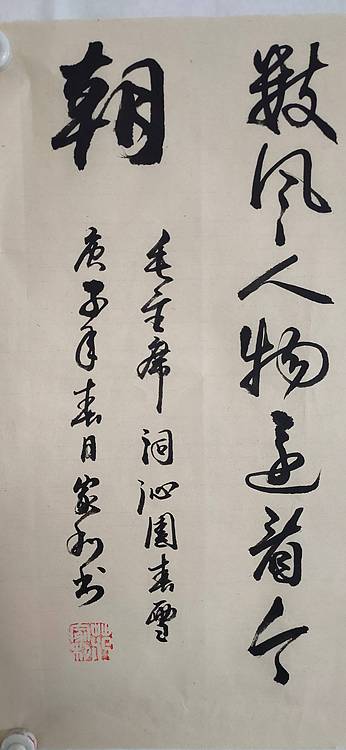 数风人物还看今
朝
毛主席词沁園春雪
庚子年春日家利书